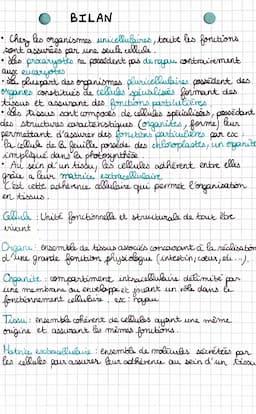 BILAN
• Chez les organismes unicellulaires, toute les fonctions
sont assurées par une seule cellule.
• Les procaryotes ne possèdent pas de noyau contrairement
aux eucaryotes
• La plupart des organismes pluricellulaires possèdent des
organes constitués de cellules spécialisées formant des
tissus et assurant des fonctions particulières.
• Les tissus sont composés de cellules spécialisées, possédant
des structures caractéristiques (organites, forme) leur
permettant d'assurer des fonctions particulières par ex:
la cellule de la feuille possède des chloroplastes, un organite
impliqué dans la photosynthèse.
• Au sein d'un tissu, les cellules adhèrent entre elles
grâce a leur matrice extracellulaire
C'est cette adhérence cellulaire qui permet l'organisation
en tissus.
Cellule : Unité fonctionnelle et structurale de tout être
vivant
Organe : ensemble de tissus associés concourant à la réalisation
d'une grande fonction physiologique (intestin, cœur, etc...).
Organite : compartiment intracellulaire délimité par
une membrane ou enveloppe et jouant un rôle dans le
fonctionnement cellulaire. ex : noyau
Tissu : ensemble cohérent de cellules ayant une même
origine et assurant les mêmes fonctions.
Matrice extracellulaire : ensemble de molécules sécrétées par
les cellules pour assurer leur adhérence au sein d'un tissu